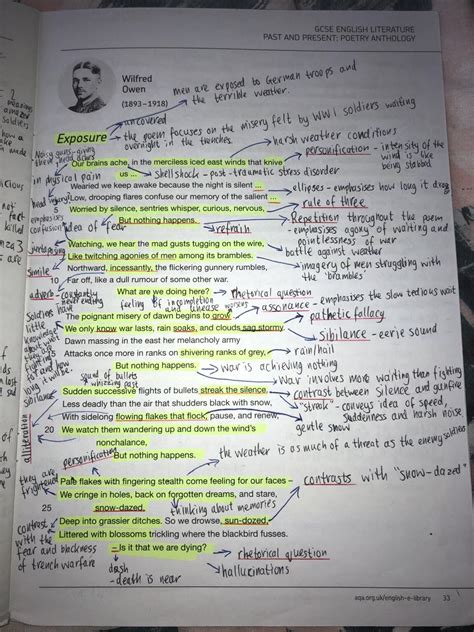 GCSE ENGLISH LITERATURE
PAST AND PRESENT: POETRY ANTHOLOGY
Wilfred
Owen
(1893–1918)
men are exposed to German troops and
the terrible weather.
uncovered
Exposure
- the poem focuses on the misery felt by WW1 soldiers waiting
overnight in the trenches
harsh weather conditions
Noisy guns - giving
them headaches
Our brains ache, in the merciless iced east winds that knive
us ...
personification - intensity of the
wind is like
being stabbed
in physical pain
shellshock - post-traumatic stress disorder
Wearied we keep awake because the night is silent ...
ellipses - emphasises how long it drags
head injury
Low, drooping flares confuse our memory of the salient ...
Worried by silence, sentries whisper, curious, nervous,
rule of three
emphasises
confusion
But nothing happens.
idea of fear
refrain
Repetition throughout the poem
- emphasises agony of waiting and
pointlessness of war
juxtaposing
Watching, we hear the mad gusts tugging on the wire,
battle against weather
Like twitching agonies of men among its brambles.
simile
Northward, incessantly, the flickering gunnery rumbles,
imagery of men struggling with
the "brambles"
10 Far off, like a dull rumour of some other war.
adverb - constantly
never ending
What are we doing here?
rhetorical question
feeling of
and unease
assonance - emphasises the slow tedious wait
The poignant misery of dawn begins to grow ...
pathetic fallacy
We only know war lasts, rain soaks, and clouds sag stormy.
sibilance - eerie sound
Dawn massing in the east her melancholy army
15 Attacks once more in ranks on shivering ranks of grey,
rain/hail
But nothing happens.
war is achieving nothing
sound of bullets
whizzing past
war involves more waiting than fighting
sibilance
Sudden successive flights of bullets streak the silence.
contrast between silence and gunfire
Less deadly than the air that shudders black with snow,
"streak" - conveys idea of speed,
suddenness and harsh noise
With sidelong flowing flakes that flock, pause, and renew,
gentle snow
alliteration
20 We watch them wandering up and down the wind's
nonchalance,
personification
But nothing happens.
the weather is as much of a threat as the enemy soldiers
they are
frightened
Pale flakes with fingering stealth come feeling for our faces –
We cringe in holes, back on forgotten dreams, and stare,
25 snow-dazed,
thinking about memories
contrasts with "snow-dazed"
contrast
with the
fear and blackness
of trench warfare
Deep into grassier ditches. So we drowse, sun-dozed,
Littered with blossoms trickling where the blackbird fusses.
– Is it that we are dying?
rhetorical question
hallucinations
dash
- death is near
aqa.org.uk/english-e-library 33